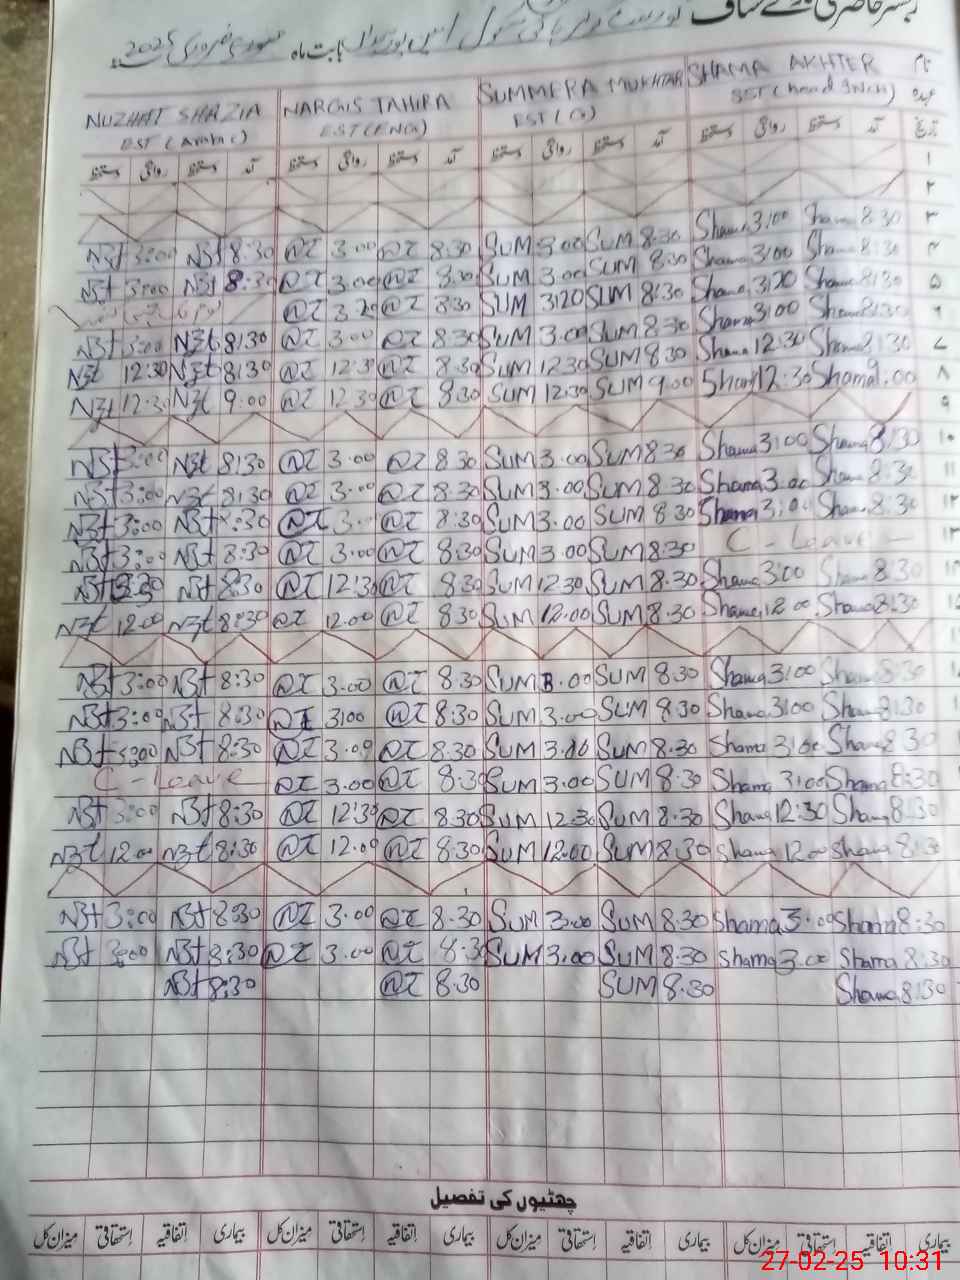 بابت ماہ
2025
نام
SHAMA AKHTER
SUMMERA MUKHTAR
NARGIS TAHIRA
NUZHAT SHAZIA
عہدہ
EST (G)
EST (ENG)
EST (Arabic)
تاریخ آمد دستخط روانگی دستخط آمد دستخط روانگی دستخط آمد دستخط روانگی دستخط آمد دستخط روانگی دستخط
۱
۲
۳ 8:30 Shama 3:00 Shama 8.30 SUM 3.00 SUM 8.30 NT 3.00 NT 8:30 N3t 3:00 N3t
۴ 8:30 Shama 3:00 Shama 8.30 SUM 3.00 SUM 8.30 NT 3.00 NT 8:30 N3t 3:00 N3t
۵ 8:30 Shama 3:20 Shama 8:30 SUM 3:20 SUM 8.30 NT 3.20 NT
۶ 8:30 Shama 3:00 Shama 8.30 SUM 3.00 SUM 8.30 NT 3.00 NT 8:30 N3t 3:00 N3t
۷ 8:30 Shama 12:30 Shama 8.30 SUM 12.30 SUM 8.30 NT 12:30 NT 8:30 N3t 12:30 N3t
۸ 9:00 Shama 12:30 Sham 9.00 SUM 12.30 SUM 8.30 NT 12.30 NT 9:00 N3t 12:30 N3t
۹
۱۰ 8:30 Shama 3:00 Shama 8.30 SUM 3.00 SUM 8.30 NT 3.00 NT 8:30 N3t 3:00 N3t
۱۱ 8:30 Shama 3.00 Shama 8.30 SUM 3.00 SUM 8.30 NT 3.00 NT 8:30 N3t 3:00 N3t
۱۲ 8:30 Shama 3:00 Shama 8.30 SUM 3.00 SUM 8:30 NT 3.00 NT 8:30 N3t 3:00 N3t
۱۳ C - Leave 8:30 SUM 3.00 SUM 8:30 NT 3.00 NT 8:30 N3t 3:00 N3t
8:30 Shama 3:00 Shama 8.30 SUM 12.30 SUM 8:30 NT 12:30 NT 8:30 N3t 3:30 N3t
8:30 Shama 12.00 Shama 8.30 SUM 12.00 SUM 8:30 NT 12.00 NT 8:30 N3t 12:00 N3t
8:30 Shama 3:00 Shama 8.30 SUM 3.00 SUM 8.30 NT 3.00 NT 8:30 N3t 3:00 N3t
8:30 Shama 3:00 Shama 8.30 SUM 3.00 SUM 8:30 NT 3:00 NT 8:30 N3t 3:00 N3t
8:30 Shama 3:00 Shama 8.30 SUM 3.00 SUM 8.30 NT 3.00 NT 8:30 N3t 3:00 N3t
8:30 Shama 3:00 Shama 8.30 SUM 3.00 SUM 8:30 NT 3.00 NT C - Leave
8:30 Shama 12:30 Shama 8.30 SUM 12.30 SUM 8.30 NT 12:30 NT 8:30 N3t 3:00 N3t
8:30 Shama 12.00 Shama 8.30 SUM 12.00 SUM 8:30 NT 12.00 NT 8:30 N3t 12.00 N3t
8:30 Shama 3:00 Shama 8.30 SUM 3.00 SUM 8.30 NT 3.00 NT 8:30 N3t 3:00 N3t
8:30 Shama 3.00 Shama 8.30 SUM 3.00 SUM 8:30 NT 3.00 NT 8:30 N3t 3:00 N3t
8:30 Shama 8.30 SUM 8.30 NT 8:30 N3t
چھٹیوں کی تفصیل
بیماری اتفاقیہ استحقاقی میزان کل بیماری اتفاقیہ استحقاقی میزان کل بیماری اتفاقیہ استحقاقی میزان کل بیماری اتفاقیہ استحقاقی میزان کل
27-02-25 10:31